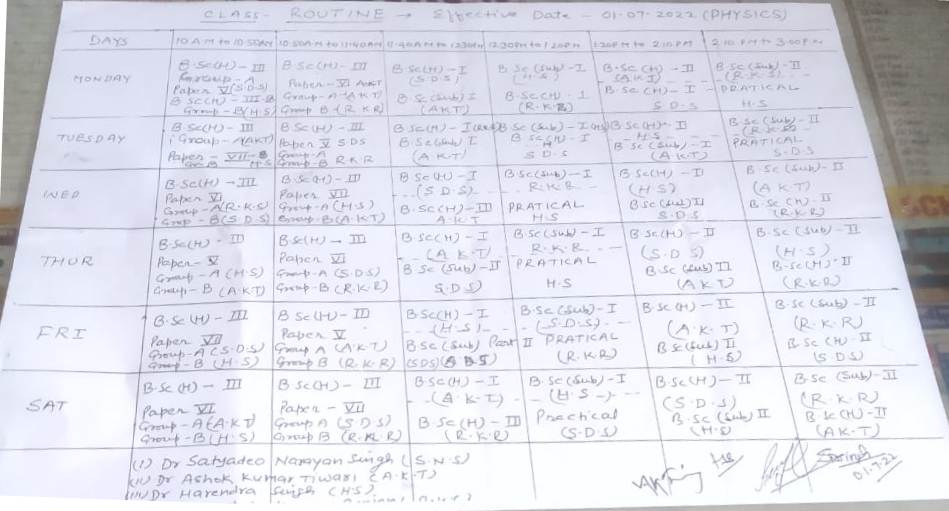 CLASS- ROUTINE → Effective Date - 01.07.2022 (PHYSICS)
DAYS 10 AM to 10.50AM 10.50AM to 11.40AM 11.40AM to 12.30PM 12.30PM to 1.20PM 1.20PM to 2.10PM 2.10.PM to 3.00P.M
MONDAY
B.Sc(H) - III
Group - A
Paper V (S.D.S)
B Sc(H) - III
Group - B (H.S)
B.Sc(H) - III
Paper - VI
Group - A (A.K.T)
Group B (R.K.R)
B Sc(H) - I
(S.D.S)
B.Sc (Sub) I
(AKT)
B Sc (Sub) - I
(H.S)
B-Sc(H) - I
(R.K.R)
B-Sc(H) - II
(A.K.T)
B-Sc (H) - I
S.D.S
B-Sc(Sub) - II
(R.K.S)
PRATICAL
H.S
TUESDAY
B.Sc(H) - III
Group - A(AKT)
Paper - VII - B
H.S
B Sc(H) - III
Paper V SDS
Group-A
Group-B R.K.R
B Sc(H) - I
B-Sc(Sub) I
(A.K.T)
B.Sc (Sub) - I
B Sc(H) - I
S.D.S
B Sc(H) - II
H.S
B Sc (Sub) - I
(A.K.T)
B-Sc (Sub) - II
(R.K.R)
PRATICAL
S.D.S
WED
B.Sc(H) - III
Paper VI
Group - A(R.K.S)
Group - B(S.D.S)
B.Sc(H) - III
Paper VII
Group-A (H.S)
Group-B(A.K.T)
B Sc(H) - I
(S.D.S)
B.Sc(H) - III
A.K.T
B.Sc(Sub) - I
R.K.R
PRATICAL
H.S
B.Sc(H) - II
(H S)
B.Sc(Sub) II
S.D.S
B.Sc (Sub) - II
(A K T)
B.Sc (H) - II
(R.K.R)
THUR
B.Sc(H) - III
Paper - V
Group - A (H.S)
Group - B (A.K.T)
B.Sc(H) - III
Paper VI
Group-A (S.D.S)
Group-B (R.K.R)
B.Sc(H) - I
(A.K.T)
B Sc (Sub) - II
S.D.S)
B.Sc (Sub) - I
R.K.R
PRATICAL
H.S
B.Sc(H) - II
(S.D S)
B.Sc (Sub) II
(A K T)
B.Sc (Sub) - II
(H.S)
B-Sc(H) - II
(R.K.R)
FRI
B.Sc (H) - III
Paper VII
Group-A (S.D.S)
Group-B (H.S)
B Sc(H) - III
Paper V
Group A (A.K.T)
Group B (R.K.R)
B.Sc(H) - I
(H.S)
B.Sc (Sub) Part II
(SDS)
B.Sc(Sub) - I
(S.D.S)
PRATICAL
(R.K.R)
B.Sc (H) - II
(A.K.T)
B.Sc(Sub) II
(H.S)
B.Sc (Sub) - II
(R.K.R)
B Sc (H) - II
(S D S)
SAT
B.Sc (H) - III
Paper VII
Group-A (A.K.T)
Group-B(H.S)
B Sc(H) - III
Paper - VII
Group A (S D S)
Group B (R.K.R)
B-Sc(H) - I
(A.K.T)
B Sc (H) - III
(R.K.R)
B.Sc (Sub) - I
(H.S)
Practical
(S.D.S)
B.Sc(H) - II
(S.D.S)
B.Sc (Sub) II
(H.S)
B.Sc (Sub) - II
(R.K.R)
B.Sc (H) - II
(A K.T)
(I) Dr Satyadeo Narayan Singh (S.N.S)
(II) Dr Ashok Kumar Tiwari (A.K.T)
(III) Dr Harendra Singh (H.S)
01.7.22